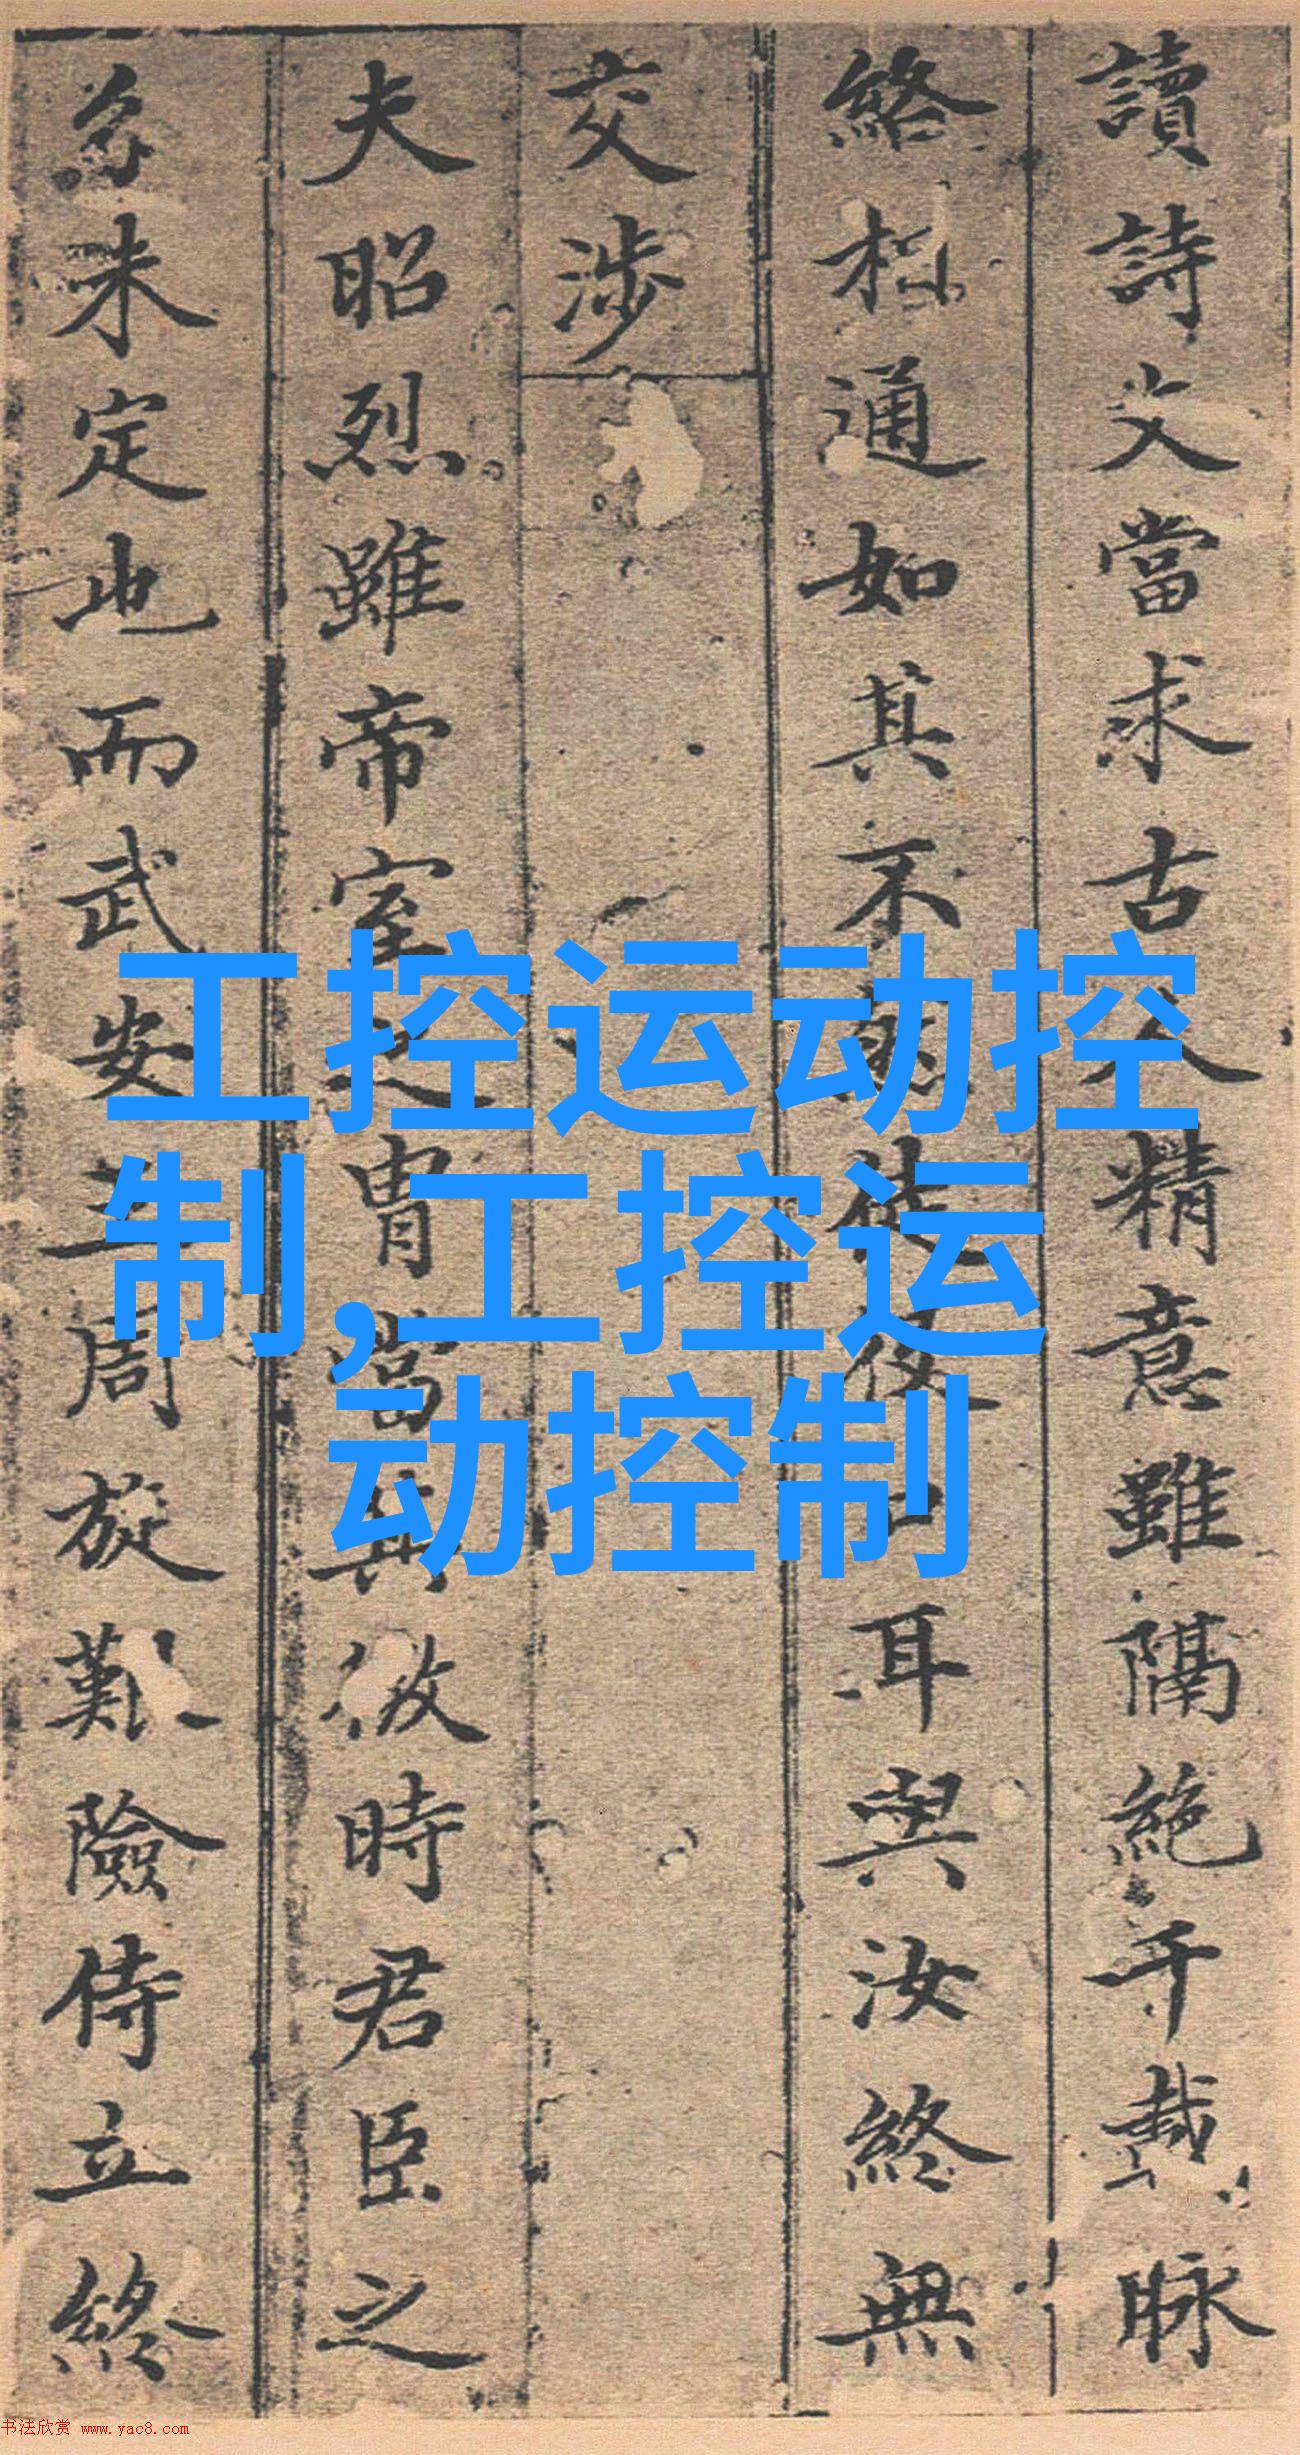 讀詩文當求古人精意雖隔絕千載脉
絡相通如其不 徒 口耳與汝終無
交涉
夫昭烈雖帝室之胄當其 時君臣之
未定也而武安 周旋難險侍立終
工控运动控
制,工控运
动控制
书法欣赏 www.yac8.com